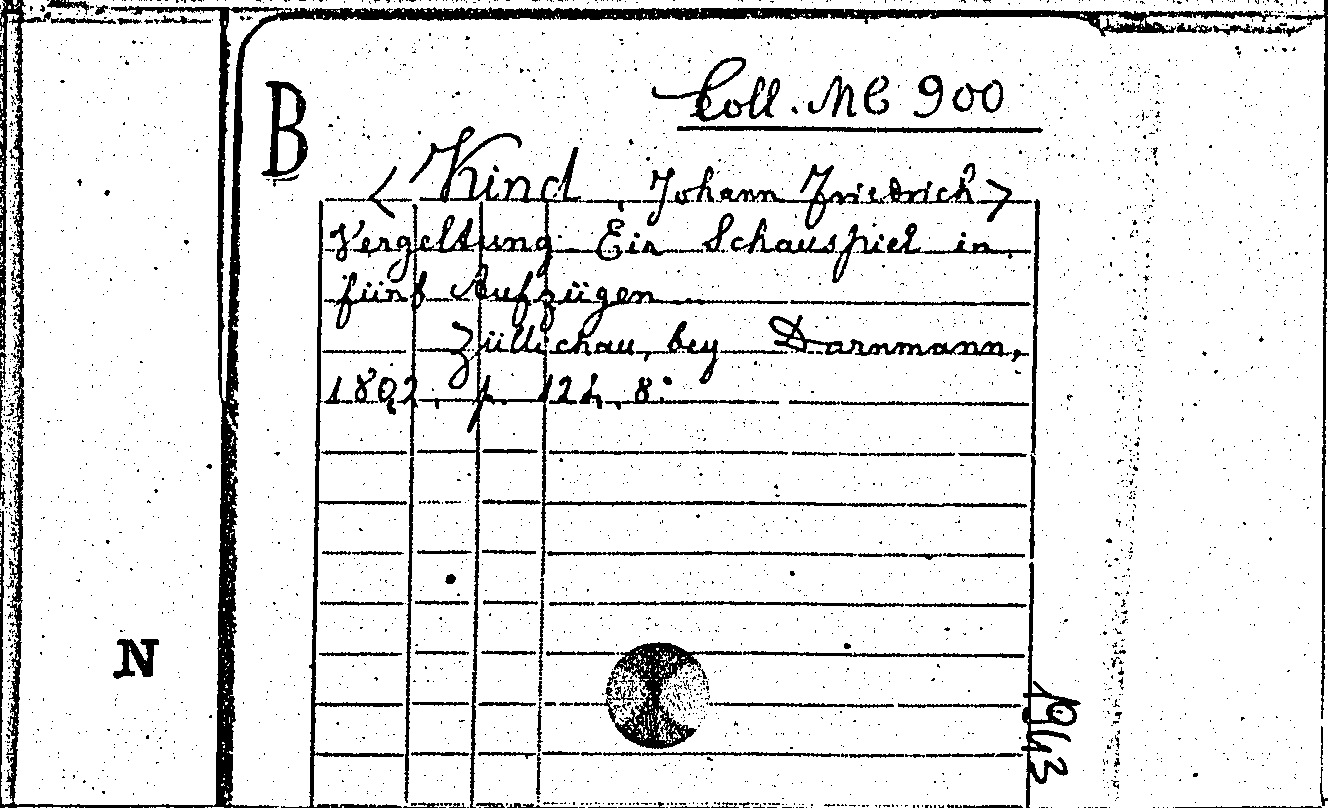 B
Coll. MC 900
< Kind, Johann Friedrich >
Vergeltung. Ein Schauspiel in
fünf Aufzügen ...
Züllichau, bey Darnmann,
1802, p. 124, 8°
N
1943